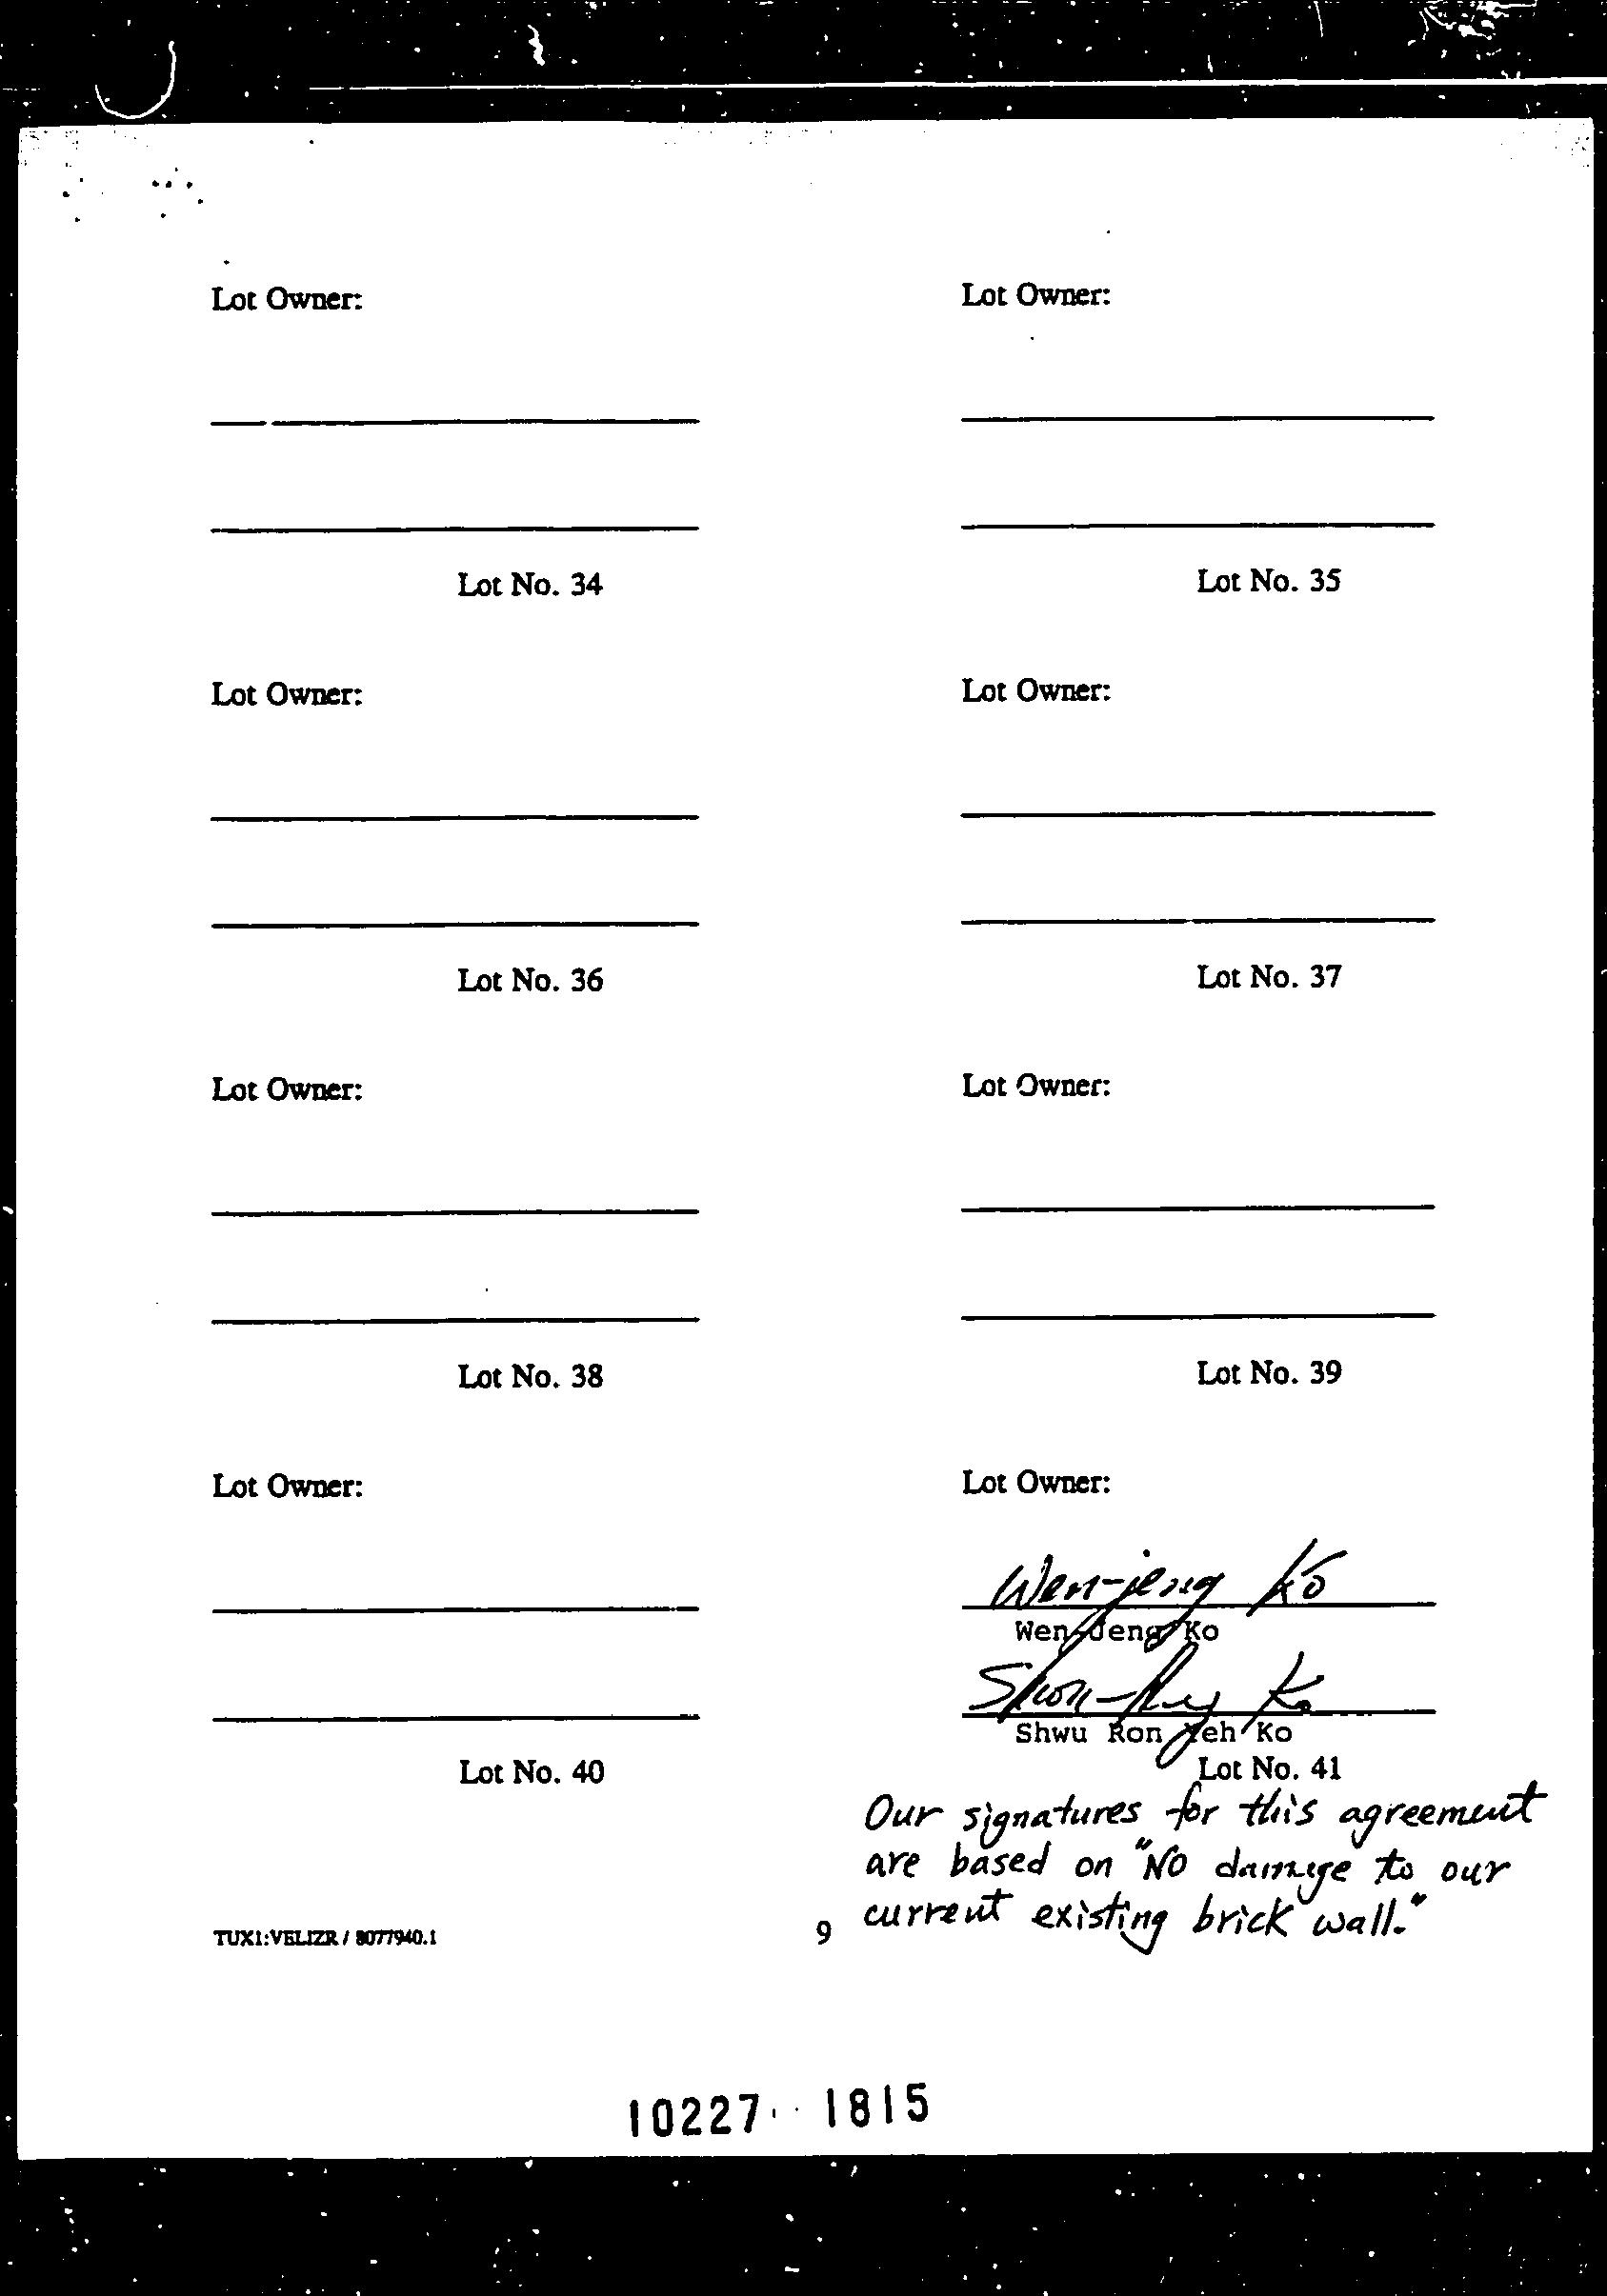 Lot Owner:
Lot Owner:
Lot No. 34
Lot No. 35
Lot Owner:
Lot Owner:
Lot No. 36
Lot No. 37
Lot Owner:
Lot Owner:
Lot No. 38
Lot No. 39
Lot Owner:
Lot Owner:
Wen-jeng Ko
Wen-Jeng Ko
Ko
Shwu Ron Yeh Ko
Lot No. 40
Lot No. 41
Our signatures for this agreement
are based on "No damage to our
current existing brick wall."
TUX1:VELIZR / 8077940.1
9
10227 1815